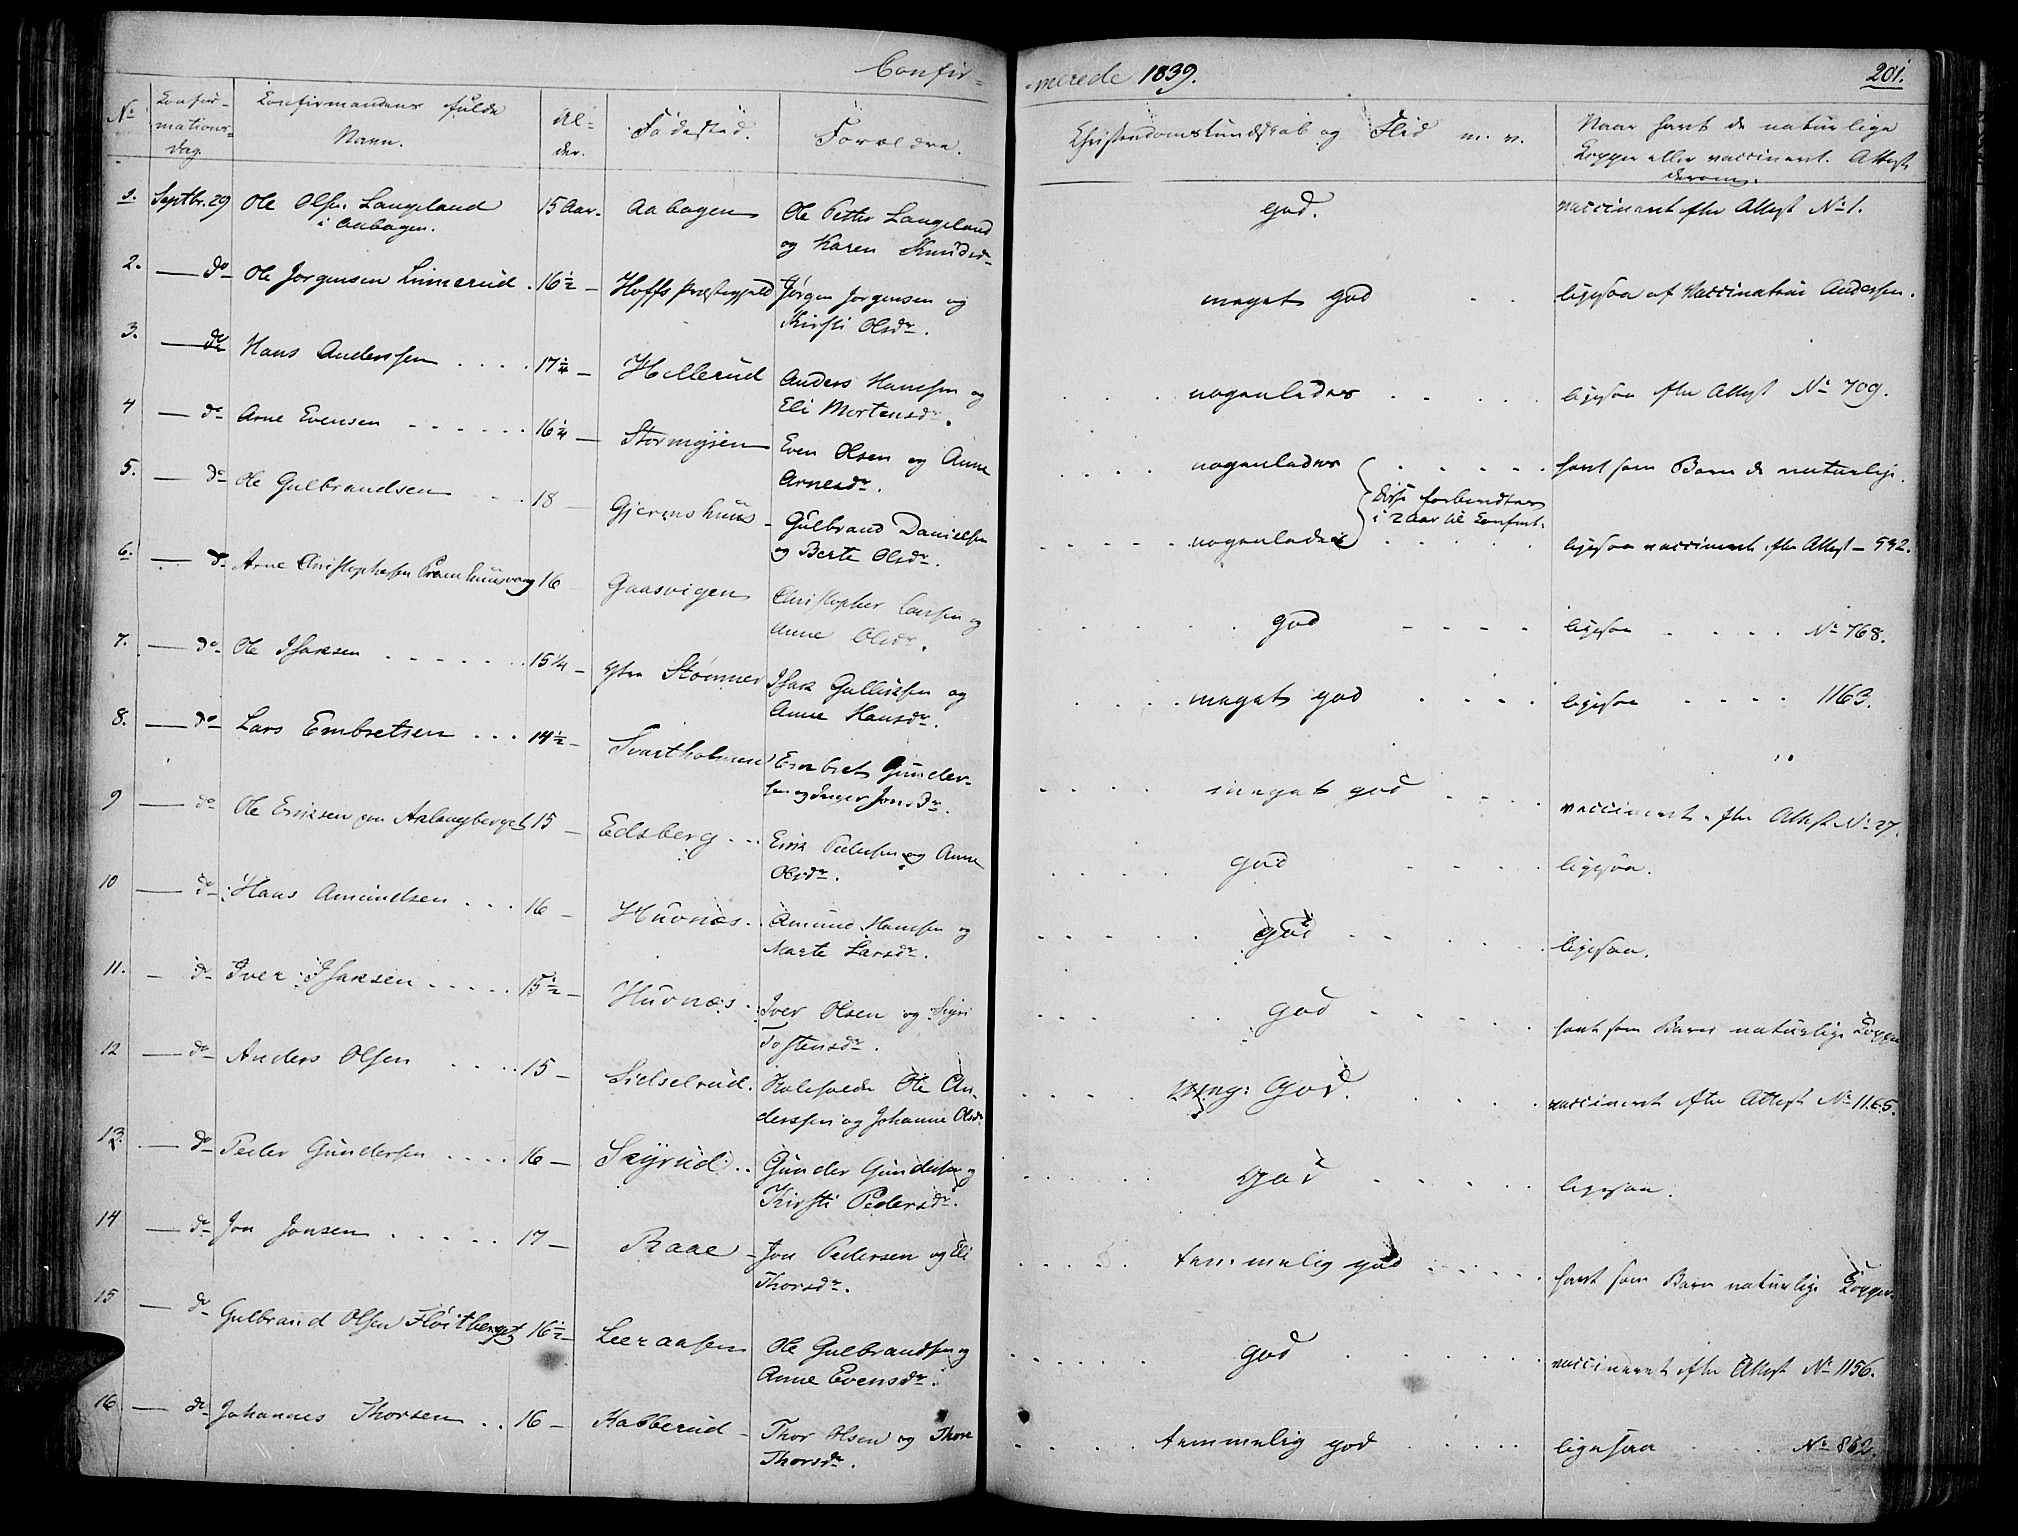 Confir-
-merede 1839.
201.
No
Confir-
mations-
dag.
Confirmandens fulde
Navn.
Al-
der.
Fødested.
Forældre.
Christendomskundskab og Flid m. v.
Naar havt de naturlige
Kopper eller vaccineret. Attest
derom.
1. Septbr. 29 Ole Olsen Langeland 15 Aar. Aabogen Ole Petter Langeland god. vaccineret efter Attest No 1.
i Aabogen. og Karen Knudsdr
2. — do Ole Jørgensen Linnerud. 16½ — Hoffs Præstegjeld Jørgen Jørgensen og meget god ligesaa af Vaccinatrice Andersen.
Kirsti Olsdr.
3. — do Hans Anderssen 17¼ — Hellerud Anders Hansen og nogenledes ligesaa efter Attest No 709.
Eli Mortensdr.
4 — do Arne Evensen 16¼ — Stormyren Even Olsen og Anne nogenledes havt som Barn de naturlige.
Arnesdr.
disse forberedtes
i 2 Aar til Confirmt.
5. — do Ole Gulbrandsen 18 — Gjermshuus Gulbrand Danielsen nogenledes ligesaa vaccineret efter Attest — 592.
og Berte Olsdr.
6. — do Arne Christophersen Pramhuusvang 16 Gaasvigen Christopher Larsen og god ligesaa No 768.
Anne Olsdr.
7. — do Ole Isaksen 15¼ — ytre Strømmer Isak Gulliksen og meget god ligesaa 1163.
Anne Hansdr.
8. — do Lars Embretsen 14½ — Svartholmen Embret Gunder- meget god vaccineret efter Attest No 27.
sen og Inger Jonsdr.
9 — do Ole Eriksen Aslangberget 15 — Edsberg Erik Pedersen og Anne god ligesaa.
Olsdr.
10 — do Hans Amundsen 16 — Huvnæs Amund Hansen og god ligesaa.
Marte Larsdr.
11. — do Iver Isaksen 15½ — Huvnæs Iver Olsen og Sigri god havt som Barn naturlige Kopper
Tostensdr.
12 — do Anders Olsen 15 — Sidselrud. Ole An- meg: God. vaccineret efter Attest No 1165.
derssen og Johanne Olsdr
13. — do Peder Gundersen 16 — Skyrud Gunder Gundersen og god ligesaa.
Kirsti Pedersdr.
14 — do Jon Jonsen 17 — Raae — Jon Pedersen og Eli temmelig god havt som Barn naturlige Kopper.
Thorsdr.
15 — do Gulbrand Olsen Fløitberget 16½ — Leeraasen Ole Gulbrandsen og god vaccineret efter Attest No 1156.
Anne Evensdr.
16 — do Johannes Thorsen 16 — Kabberud — Thor Olsen og Thore temmelig god ligesaa No 852.
Thorsdr.